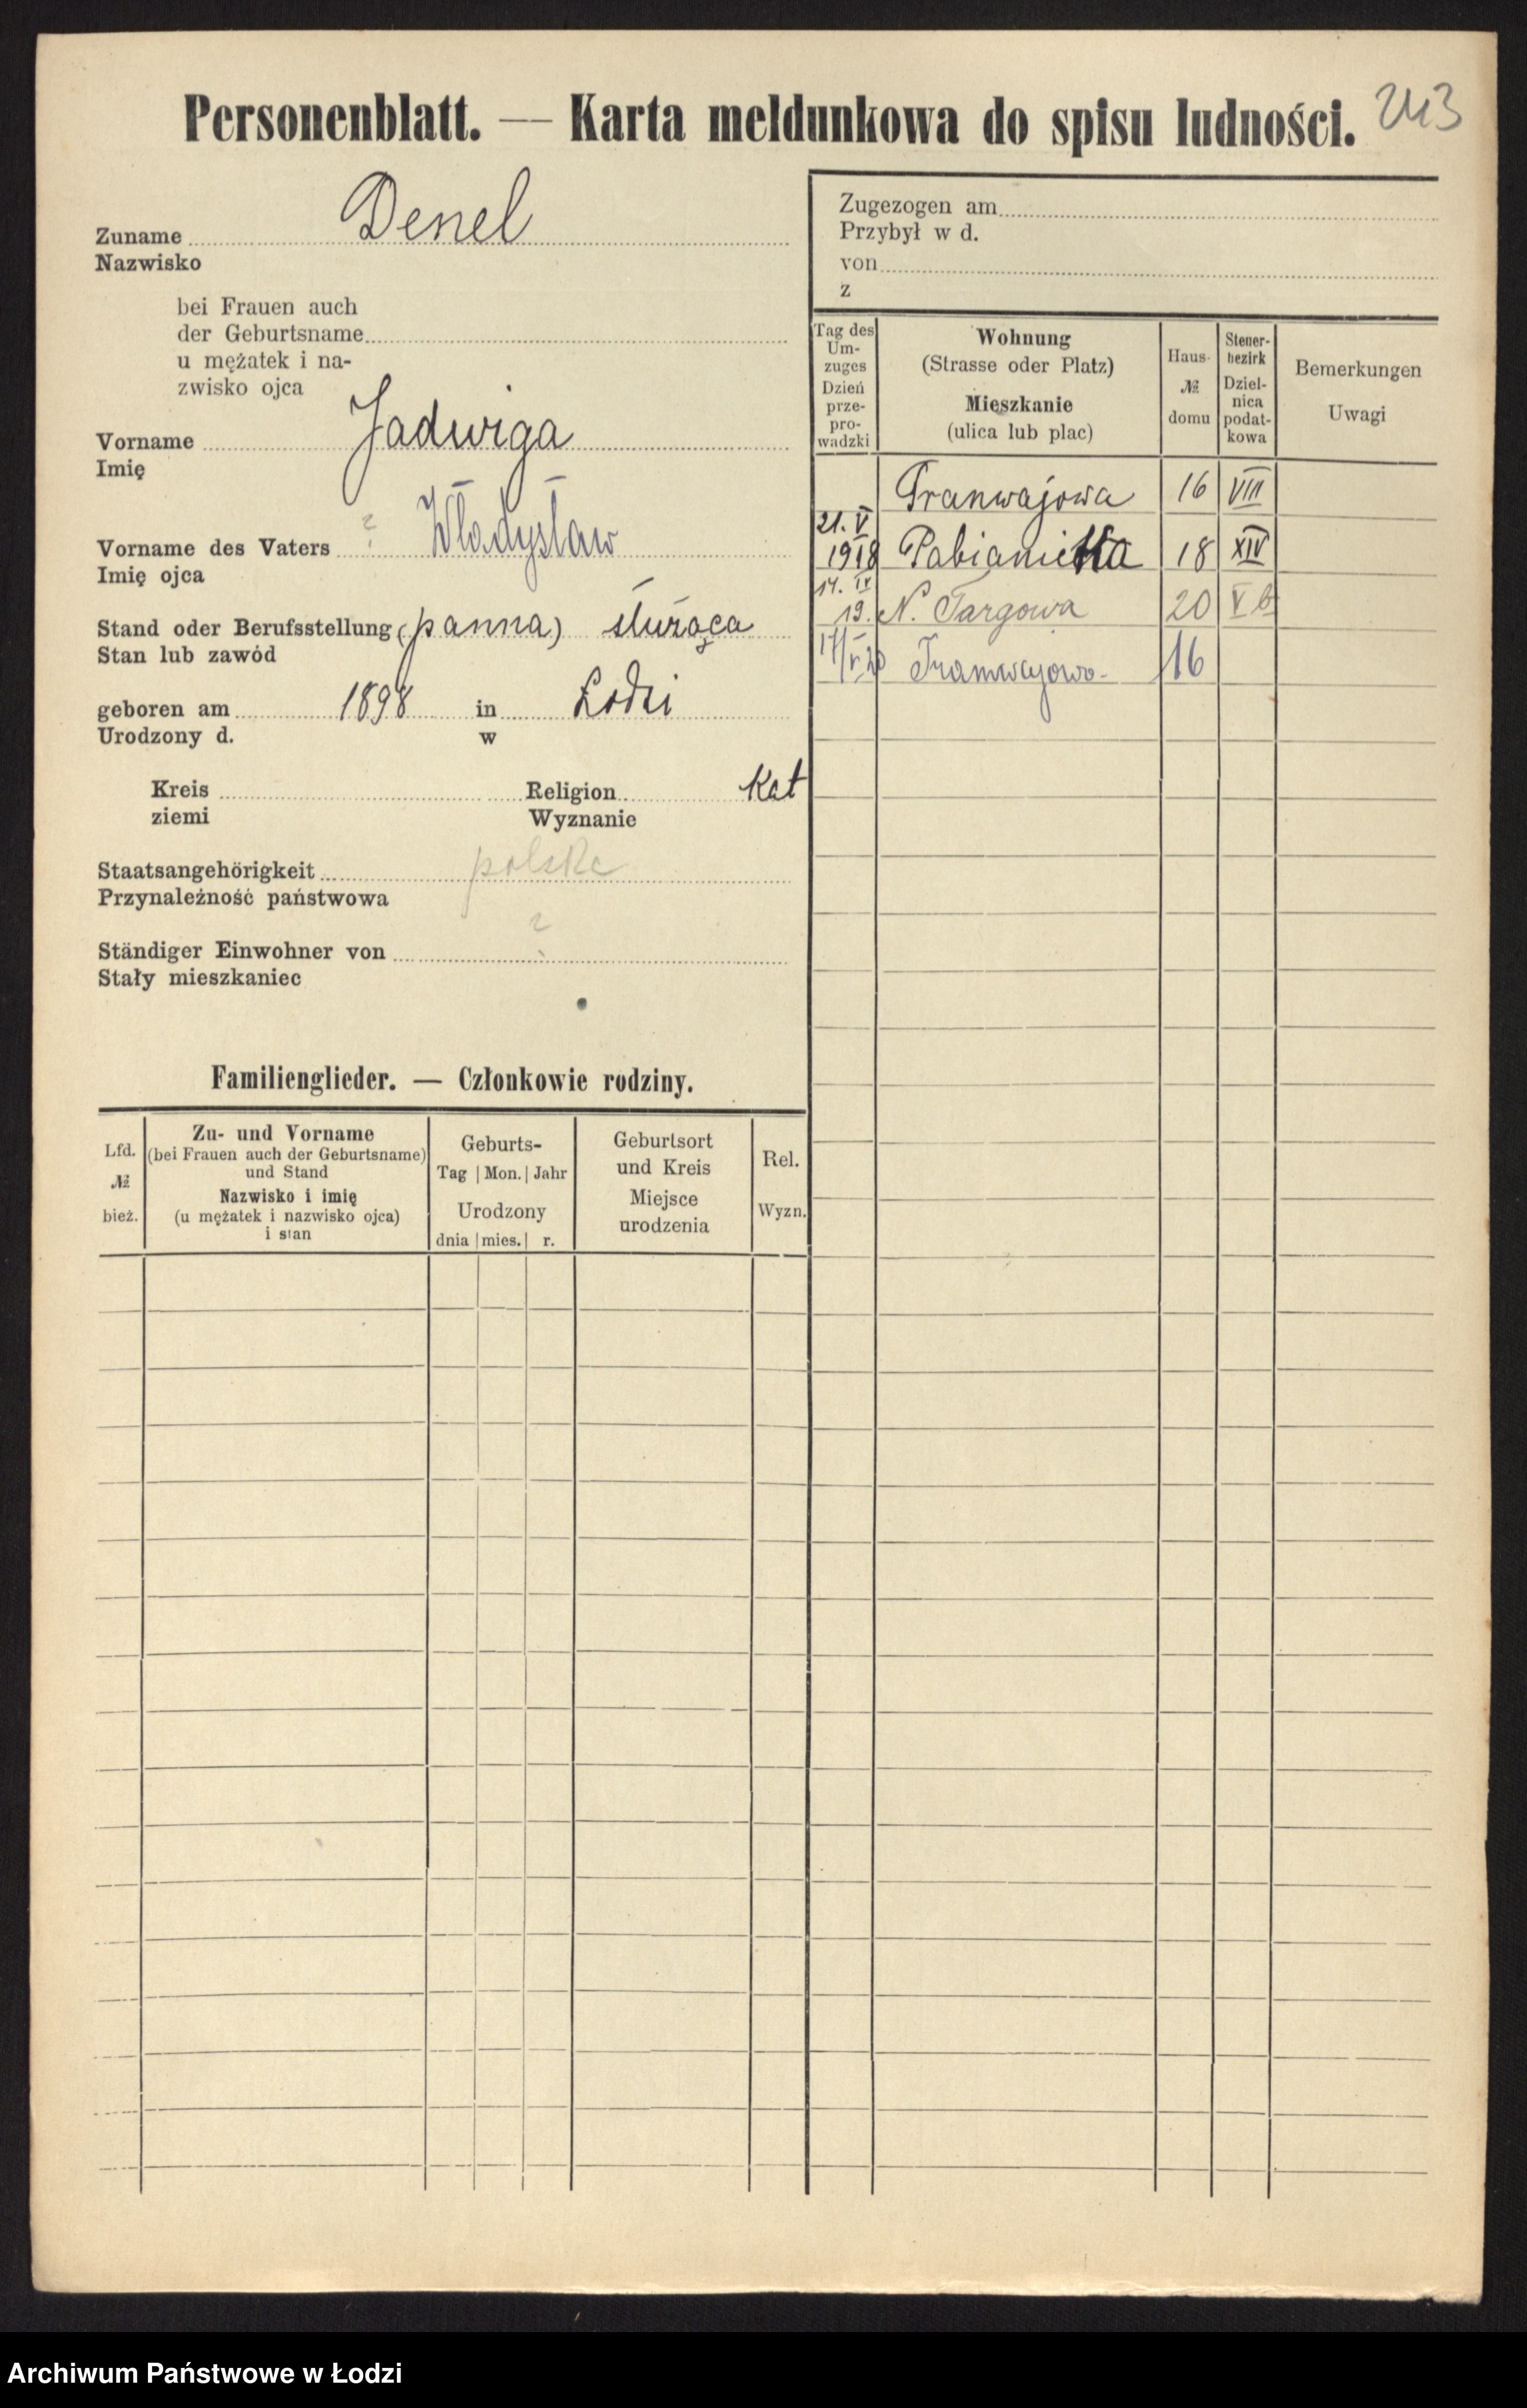 Personenblatt. — Karta meldunkowa do spisu ludności. 243
Zuname Denel
Nazwisko
bei Frauen auch
der Geburtsname
u mężatek i na-
zwisko ojca
Vorname Jadwiga
Imię
Vorname des Vaters ? Władysław
Imię ojca
Stand oder Berufsstellung (panna) służąca
Stan lub zawód
geboren am 1898 in Łodzi
Urodzony d. w
Kreis Religion Kat
ziemi Wyznanie
Staatsangehörigkeit polska
Przynależność państwowa
Ständiger Einwohner von ?
Stały mieszkaniec
Zugezogen am
Przybył w d.
von
z
Tag des
Um-
zuges
Dzień
prze-
pro-
wadzki
Wohnung
(Strasse oder Platz)
Mieszkanie
(ulica lub plac)
Haus-
№
domu
Steuer-
bezirk
Dziel-
nica
podat-
kowa
Bemerkungen
Uwagi
Tranwajowa 16 VIII
21. V
1918 Pabianicka 18 XIV
14. IV
19. N. Targowa 20 V b
17/V 20 Tramwajowa 16
Familienglieder. — Członkowie rodziny.
Lfd.
№
bież.
Zu- und Vorname
(bei Frauen auch der Geburtsname)
und Stand
Nazwisko i imię
(u mężatek i nazwisko ojca)
i stan
Geburts-
Tag | Mon. | Jahr
Urodzony
dnia | mies. | r.
Geburtsort
und Kreis
Miejsce
urodzenia
Rel.
Wyzn.
Archiwum Państwowe w Łodzi